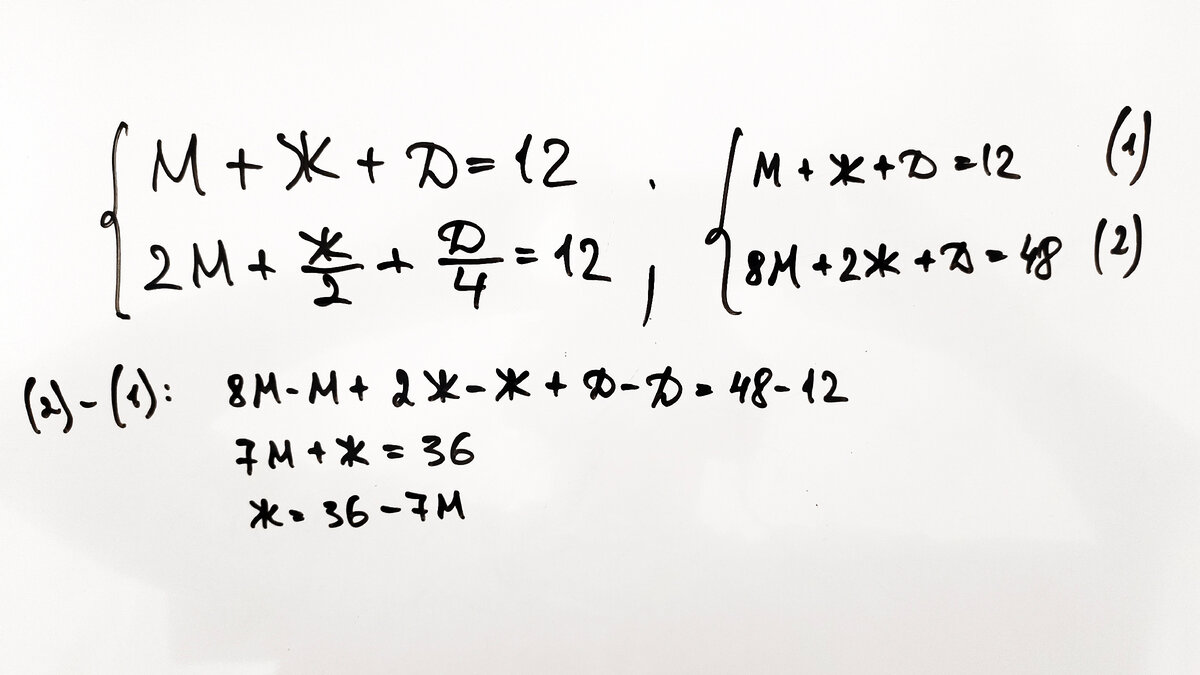 М + Ж + Д = 12 , М + Ж + Д = 12 (1)
2М + Ж/2 + Д/4 = 12 8М + 2Ж + Д = 48 (2)
(2) - (1): 8М - М + 2Ж - Ж + Д - Д = 48 - 12
7М + Ж = 36
Ж = 36 - 7М